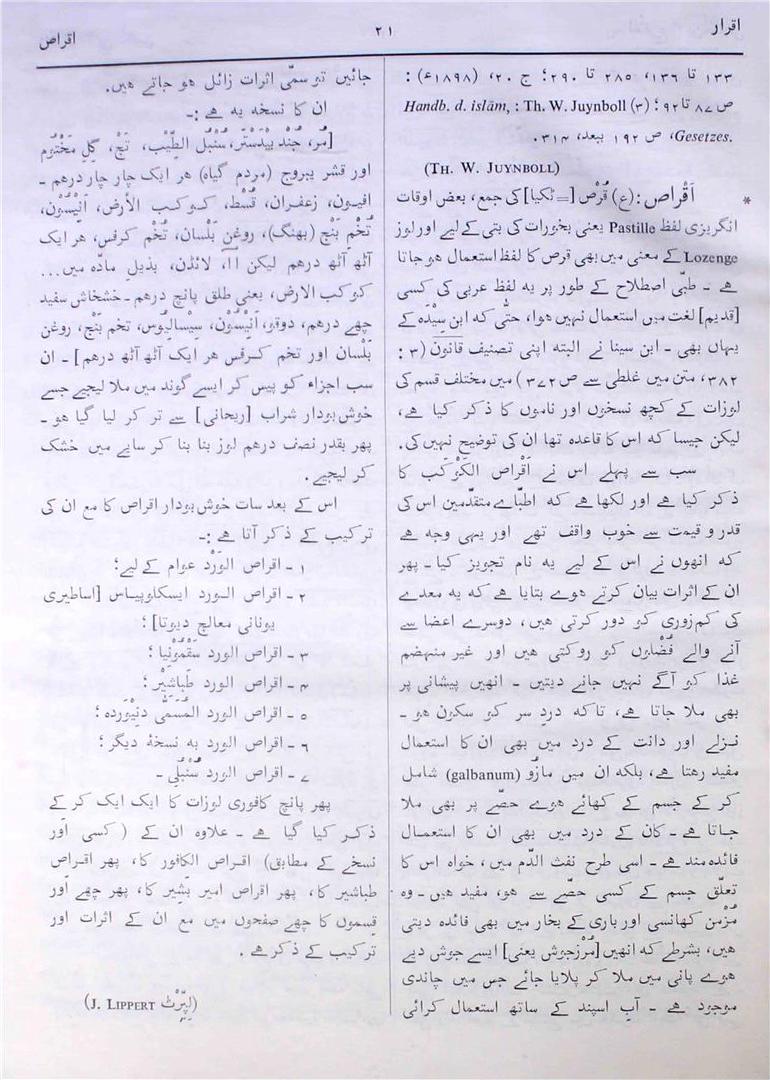 اقرار
۲۱
اقراص
۱۳۳ تا ۱۳۶، ۲۸۵ تا ۲۹۰؛ ج ۲۰، (۱۸۹۸ء) :
ص ۸۷ تا ۹۲؛ (۳) Th. W. Juynboll : Handb. d. islām,
Gesetzes.، ص ۱۹۲ ببعد، ۳۱۴.
(TH. W. JUYNBOLL)
* اَقْراص: (ع) قُرْص [= ٹکیا] کی جمع، بعض اوقات
انگریزی لفظ Pastille یعنی بخورات کی بتی کے لیے اور لوز
Lozenge کے معنی میں بھی قرص کا لفظ استعمال ہو جاتا
ہے ۔ طبّی اصطلاح کے طور پر یہ لفظ عربی کی کسی
[قدیم] لغت میں استعمال نہیں ہوا، حتّٰی کہ ابن سِیْدَہ کے
یہاں بھی ۔ ابن سینا نے البتہ اپنی تصنیف قانون (۳ :
۳۸۲، متن میں غلطی سے ص ۳۷۲) میں مختلف قسم کی
لوزات کے کچھ نسخوں اور ناموں کا ذکر کیا ہے،
لیکن جیسا کہ اس کا قاعدہ تھا ان کی توضیح نہیں کی.
سب سے پہلے اس نے اَقْراص الکَوْکَب کا
ذکر کیا ہے اور لکھا ہے کہ اطبّاے متقدّمین اس کی
قدر و قیمت سے خوب واقف تھے اور یہی وجہ ہے
کہ انھوں نے اس کے لیے یہ نام تجویز کیا ۔ پھر
ان کے اثرات بیان کرتے ہوے بتایا ہے کہ یہ معدے
کی کم زوری کو دور کرتی ہیں، دوسرے اعضا سے
آنے والے فُضْلوں کو روکتی ہیں اور غیر منہضم
غذا کو آگے نہیں جانے دیتیں ۔ انھیں پیشانی پر
بھی ملا جاتا ہے، تاکہ درد سر کو سکون ہو ۔
نزلے اور دانت کے درد میں بھی ان کا استعمال
مفید رہتا ہے، بلکہ ان میں مازُو (galbanum) شامل
کر کے جسم کے کھائے ہوے حصّے پر بھی ملا
جاتا ہے ۔ کان کے درد میں بھی ان کا استعمال
فائدہ مند ہے ۔ اسی طرح نفث الدّم میں، خواہ اس کا
تعلّق جسم کے کسی حصّے سے ہو، مفید ہیں ۔ وہ
مُزْمن کھانسی اور باری کے بخار میں بھی فائدہ دیتی
ہیں، بشرطے کہ انھیں [مَرْزجوش یعنی] ایسے جوش دیے
ہوے پانی میں ملا کر پلایا جائے جس میں چاندی
موجود ہے ۔ آبِ اسپند کے ساتھ استعمال کرائی
جائیں تو سمّی اثرات زائل ہو جاتے ہیں.
ان کا نسخہ یہ ہے :۔
[مُر، جُند بیدَسْتَر، سُنْبُل الطِّیْب، تَج، گِل مَخْتُوم
اور قشر یبروج (مردم گیاہ) ہر ایک چار چار درہم ۔
افیون، زعفران، قُسْط، کوکب الأرض، اَنیْسُون،
تُخم بَنْج (بھنگ)، روغنِ بَلْسان، تُخم کرفس، ہر ایک
آٹھ آٹھ درہم لیکن آآ، لائڈن، بذیل مادّہ میں...
کوکب الارض، یعنی طلق پانچ درہم ۔ خشخاش سفید
چھے درہم، دوقو، اَنِیْسُون، سِیْسالِیُوس، تخم بَنْج، روغن
بَلْسان اور تخم کرفس ہر ایک آٹھ آٹھ درہم] ۔ ان
سب اجزاء کو پیس کر ایسے گوند میں ملا لیجیے جسے
خوش بودار شراب [ریحانی] سے تر کر لیا گیا ہو ۔
پھر بقدر نصف درہم لوز بنا بنا کر سایے میں خشک
کر لیجیے.
اس کے بعد سات خوش بودار اقراص کا مع ان کی
ترکیب کے ذکر آتا ہے :۔
۱ ۔ اقراص الوَرْد عوام کے لیے؛
۲ ۔ اقراص الورد ایسکلوپیاس [اساطیری
یونانی معالج دیوتا]؛
۳ ۔ اقراص الورد سَقْمُونْیا؛
۴ ۔ اقراص الورد طَباشِیْر؛
۵ ۔ اقراص الورد المُسَمّٰی دنیوردہ؛
۶ ۔ اقراص الورد بہ نسخۂ دیگر؛
۷ ۔ اقراص الورد سُنْبُلی ۔
پھر پانچ کافوری لوزات کا ایک ایک کر کے
ذکر کیا گیا ہے ۔ علاوہ ان کے (کسی اَور
نسخے کے مطابق) اقراص الکافور کا، پھر اقراص
طباشیر کا، پھر اقراص امیر بَشیر کا، پھر چھے اَور
قسموں کا چھے صفحوں میں مع ان کے اثرات اور
ترکیب کے ذکر ہے.
(لِپّرْٹ J. LIPPERT)